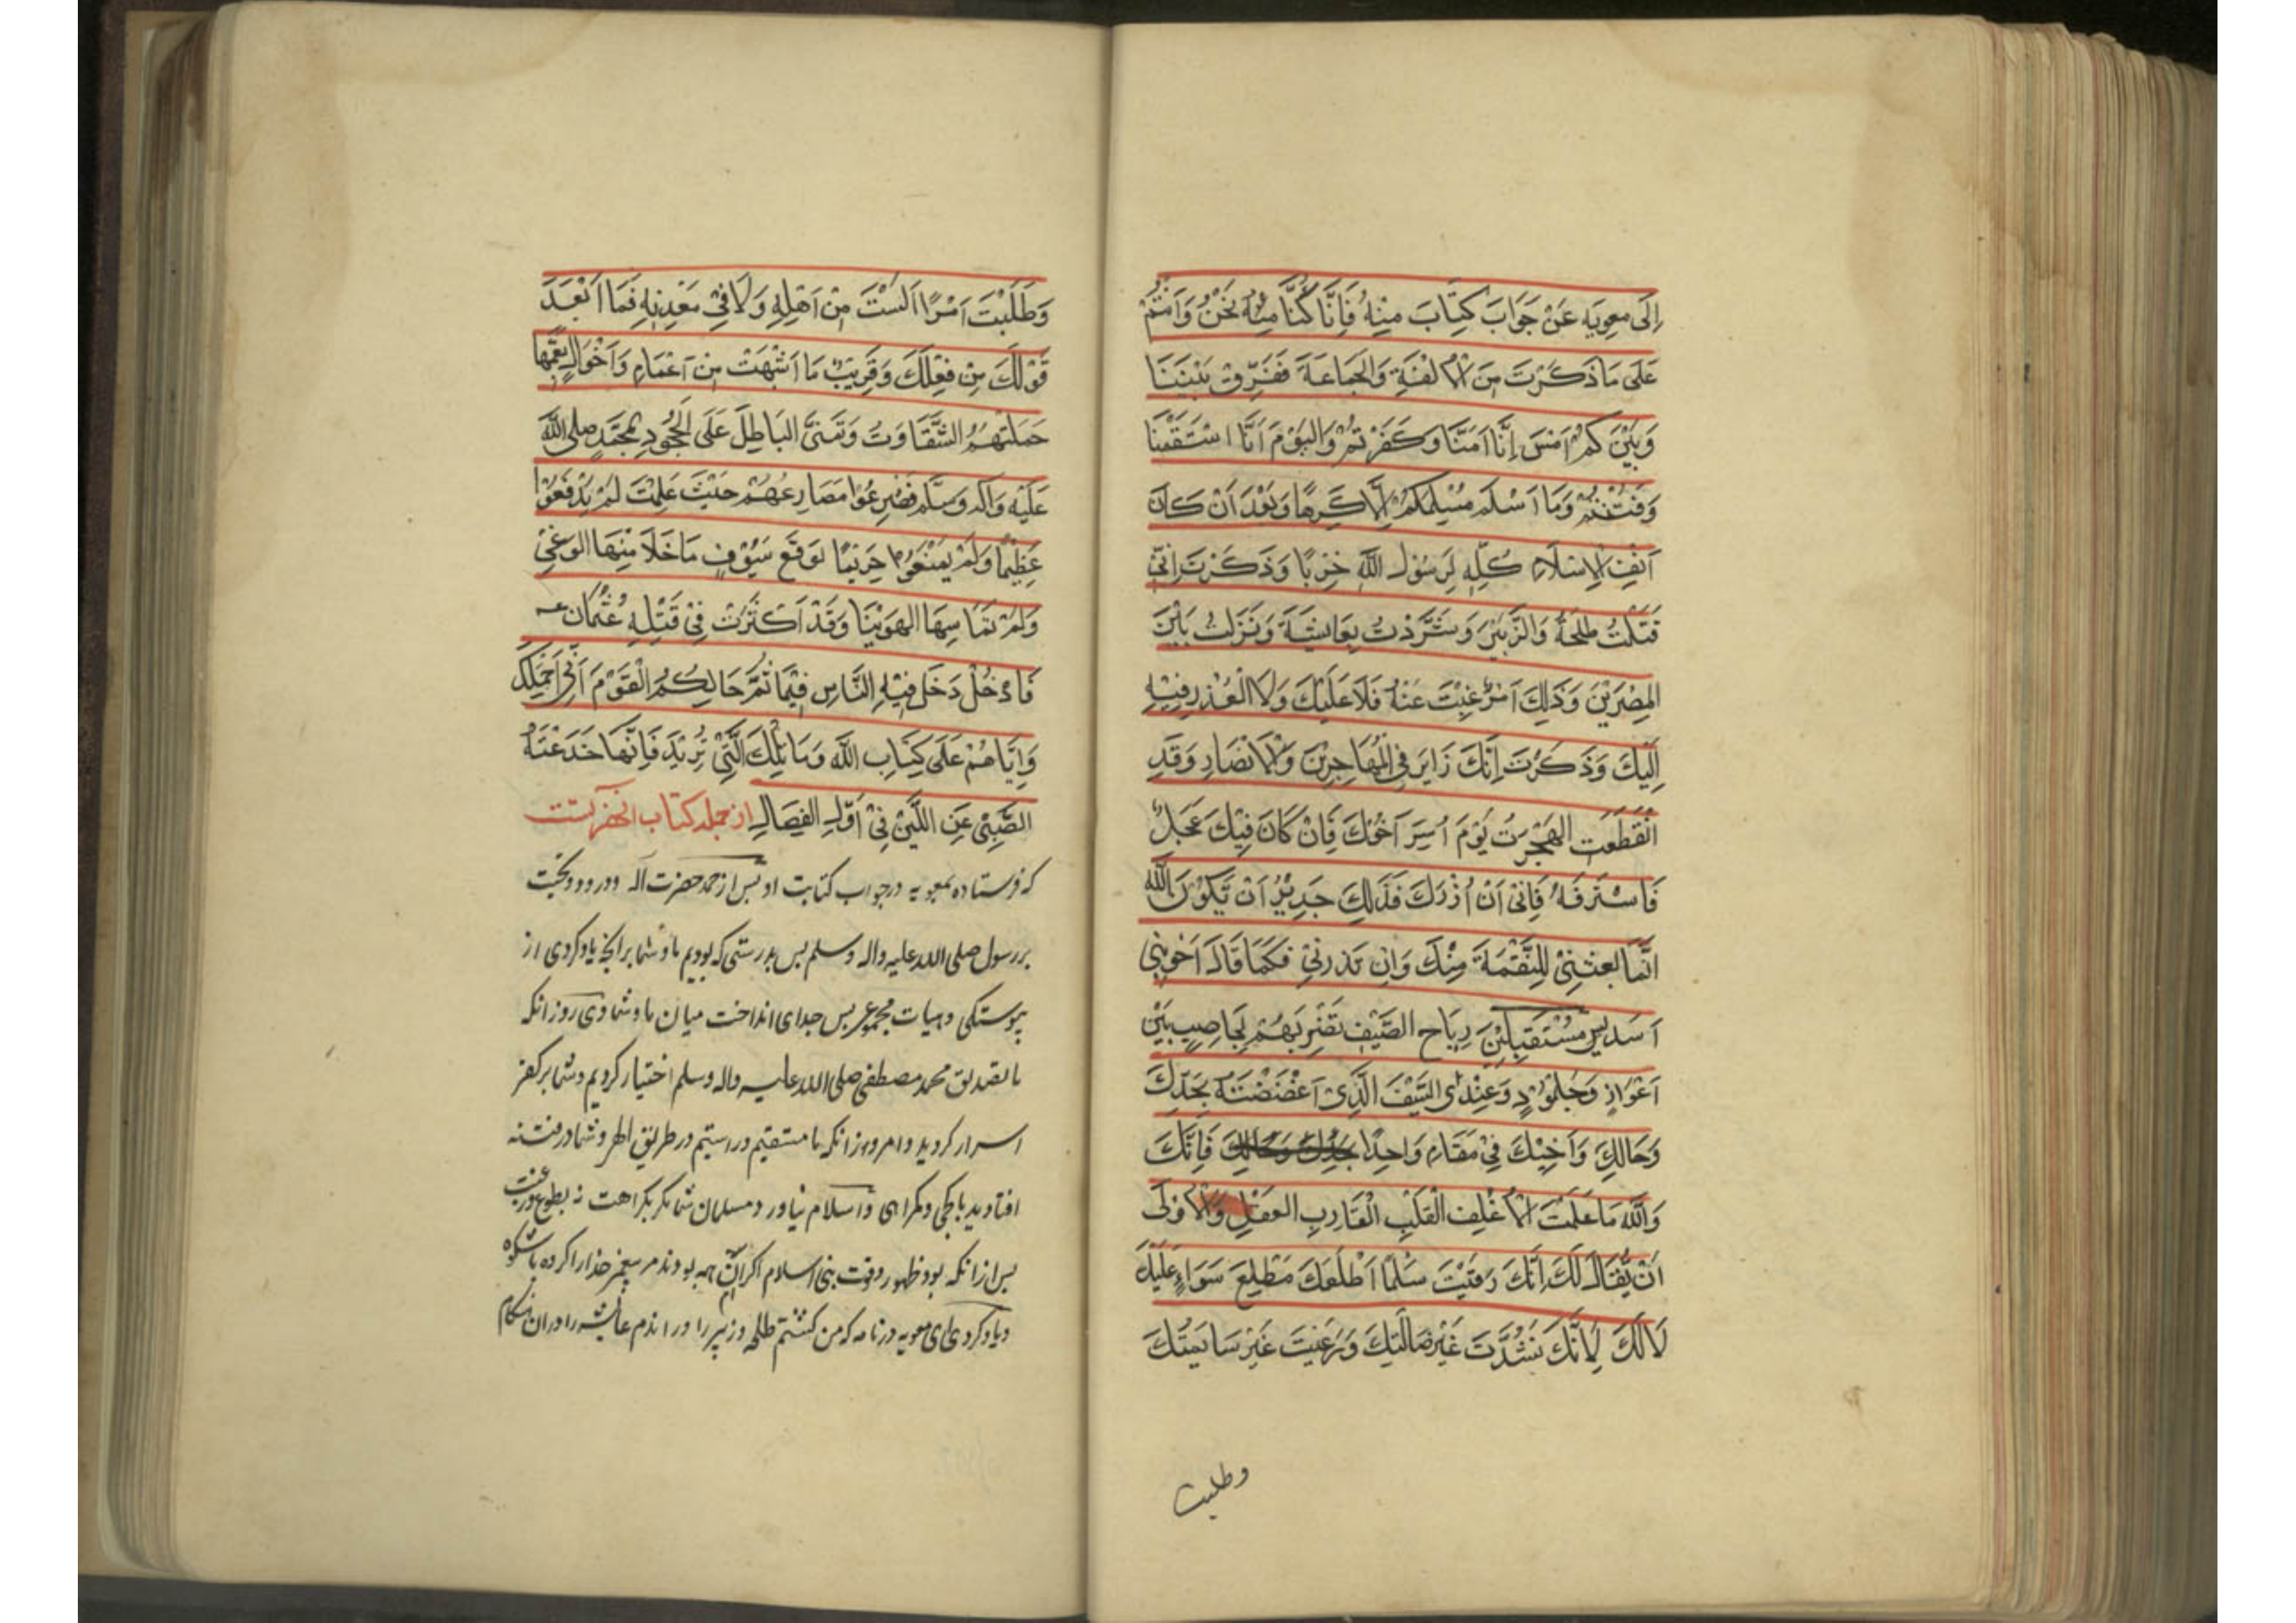 إِلَى مٰعوِيَه عَنْ جَوَابَ كِتَابَ مِنِهُ فَاِنَّا كُنَّا مِنْهُ نَحْنُ وَاَنْتُمْ
عَلَى مَا ذَكَرْتَ مِنَ الْاُلْفَةِ وَالجَمَاعَةَ فَفَرِّقَ بَيْنَنَا
وَبَيْنَ كُمْ اَمْسَ اِنَّا اَمَنَّا وَكَفَرْتُمْ وَاليَوْمَ اَنَّا اسْتَقَمْنَا
وَفَتُنْتُمْ وَمَا اَسْلَمَ مُسْلِمَكُمْ اِلَّا كَرِهًا وَبَعْدَ اَنْ كَانَ
اَنْفِ الْاِسْلَامِ كُلِّهِ لِرَسُوْلِ اللّٰهِ حِزْبًا وَذَكَرْتَ اِنّىْ
قَتَلْتُ طَلْحَةُ وَالزَّبَيْرَ وَشَرَّدْتُ بِعَايشَةَ وَنَزَلْتُ بَيْنَ
المِصْرَيْنَ وَذَلِكَ اَمْرٌ غِبْتَ عَنْهُ فَلَا عَلَيْكَ وَلَا الْعُذْرِ فِيْهِ
اِلَيْكَ وَذَكَرْتَ اِنَّكَ زَايرَ فِى الْمُهَاجِرِيْنَ وَالْاَنْصَارِ وَقَدِ
انْقَطَعَتِ الهَجْرَتُ يَوْمَ اُسِرَ اَخُوْكَ فَاِنْ كَانَ فِيْكَ عَجَلٌ
فَاسْتَرْفَهُ فَاِنّىْ اَنْ اُزْرَكَ فَذَلِكَ جَدِيْرٌ اَنْ تَكُوْنَ اللّٰه
اِنَّمَا بَعَثَنِىْ لِلنَّقْمَةَ مِنْكَ وَاِنْ تَذَرنِىْ فَكَمَا قَالَ اَخُوبَنِىْ
اَسَدِيْسٍ مُسْتَقْبِلِيْنَ رِيَاحِ الصَّيْفِ تَضْرِبَهُمْ بِحَاصِبٍ بَيْنَ
اَغْوَارٍ وَجُلْمُوْدٍ وَعِنْدِى السَّيْفَ الَّذِىْ اَعْضَضْتَهُ بَجَدِّكَ
وَخَالِكَ وَاَخِيْكَ فِىْ مَقَامٍ وَاحِدًا فَاِنَّكَ
وَاللّٰهِ مَا عَلِمْتَ الْاَغْلِفَ الْقَلْبِ الْقَارِبِ العَقْلِ وَالْاُوْلَى
اَنْ يُّقَالَ لَكَ اِنَّكَ رَقَيْتَ سَلْمًا اَطْلَعَكَ مَطْلِعَ سَوَاءٍ عَلَيْكَ
لَا لَكَ لِاَنَّكَ نَشُدَّتَ غَيْرَ ضَالَّتِكَ وَرَعَيْتَ غَيْرَ سَايَمِتُكَ
وطلبت
وَطَلَبْتَ اَمْرًا السْتَ مِنْ اَهْلِهِ وَلَا فِىْ مَعْدِنِهِ فَمَا اَبْعَدَ
قَوْلَكَ مِنْ فِعْلِكَ وَقَرِيْبٌ مَا اَشْبَهْتَ مِنْ اَعْمَامٍ وَاَخْوَالٍ
حَمَلَتْهُمُ الشَّقَاوَتُ وَتَمَنَّى البَاطِلَ عَلَى الْجُحُوْدِ بِمُحَمَّدٍ صلى اللّٰه
عَلَيْهِ وَاٰلِهِ وَسَلَّم فَصُرِعُوْا مَصَارِعُهُمْ حَيْثَ عَلِمْتَ لَمْ يَدْفَعُوْا
عَظِيْمًا وَلَمْ يَمْنَعُوْا حَرِيْمًا لوَقَع سَيُوْفٍ مَا خَلَا مِنْهَا الوَغِىْ
وَلَمْ تمَا سِهَا الهوَيْنَا وَقَدْ اَكْثَرْتَ فِىْ قَتْلِهِ عُثْمَان
فَادْخُلْ دَخَلَ فِيْهِ النَّاسِ فِيْمَا ثُمَّ حَالِكُمُ الْقَوْمَ اِلَىَّ اَحْمِلِكَ
وَاِيَّاهُمْ عَلَى كِتَابِ اللّٰهِ وَمَا تِلْكَ الَّتِىْ تُرِيْدَ فَاِنَّهَا خَدَعْتَهُ
الصَّبِىّ عَنِ اللَّبَنِ فِىْ اَوَّلِ الفِصَالِ از جمله كتاب آنحضرتست
كه فرستاده بمعويه درجواب كتابت او پس از حمد حضرت آله و درود و تحيت
بررسول صلى الله عليه واله وسلم پس بدرستى كه بوديم ما وشما برانچه ياد كردى از
پيوستكى وهيات مجموع پس جداى انداخت ميان ما وشما دى روز انكه
ما بتصديق محمد مصطفى صلى الله عليه واله وسلم اختيار كرديم وشما بر كفر
اسرار كرديد وامروز انكه ما مستقيم وراستيم درطريق اطهر وشما درفتنه
افتاديد باكجى وكمراهى واسلام نياورد مسلمان شما مكر بكراهت نه بطوع ورغبت
پس از انكه بود ظهور وقوت بنى اسلام اكران همه بودند مر پيغمبر خدا را كرده باشكوه
وياد كردى اى معويه درنامه كه من كشتم طلحه وزبير را وراندم عايشه را دران هنكام